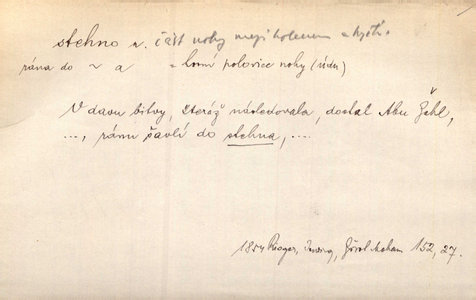 stehno n. část nohy mezi kolenem a kyčlí.
rána do ~ a = horní polovice nohy (údu)
V davu bitvy, kteráž následovala, dostal Abu Žehl,
..., ránu šavlí do stehna, ....
1854 Rieger, Irving, Život Moham 152, 27.